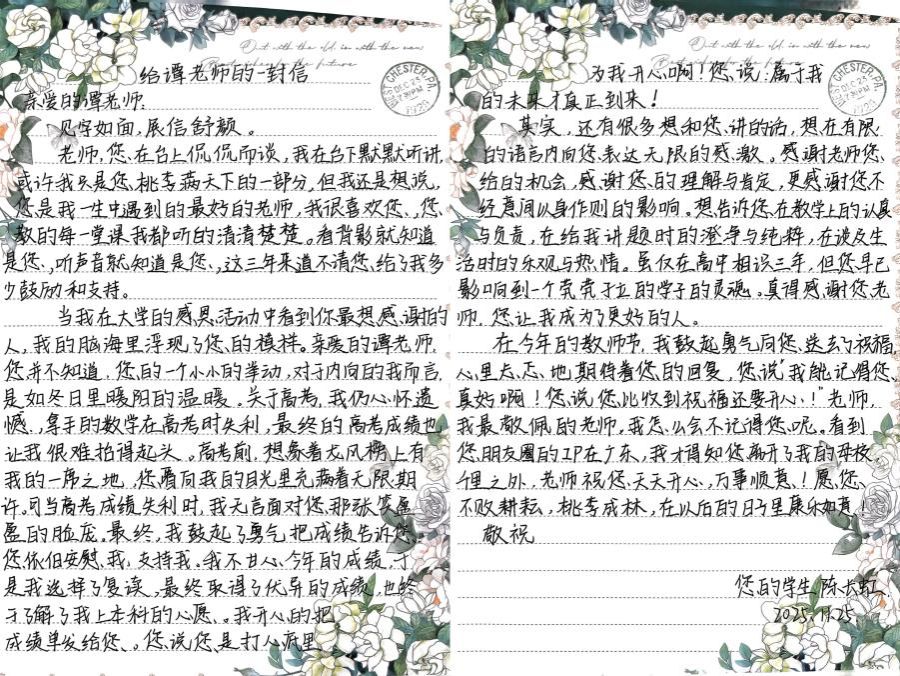 Out with the old in with the new
给谭老师的一封信
亲爱的谭老师:
见字如面,展信舒颜。
老师,您在台上侃侃而谈,我在台下默默听讲,
或许我只是您桃李满天下的一部分,但我还是想说,
您是我一生中遇到的最好的老师,我很喜欢您,您
教的每一堂课我都听的清清楚楚。看背影就知道
是您,听声音就知道是您,这三年来道不清您给了我多
少鼓励和支持。
当我在大学的感恩活动中看到你最想感谢的
人,我的脑海里浮现了您的模样。亲爱的谭老师,
您并不知道,您的一个小小的举动,对于内向的我而言,
是如冬日里暖阳的温暖。关于高考,我仍心怀遗
憾,拿手的数学在高考时失利,最终的高考成绩也
让我很难抬得起头。高考前,想象着龙凤榜上有
我的一席之地,您看向我的目光里充满着无限期
许。可当高考成绩失利时,我无言面对您那张笑盈
盈的脸庞。最终,我鼓起了勇气把成绩告诉您,
您依旧安慰我,支持我。我不甘心今年的成绩,于
是我选择了复读,最终取得了优异的成绩,也终
于了解了我上本科的心愿。我开心的把
成绩单发给您,您说您是打心底里
Out with the old in with the new
为我开心啊!您说:属于我
的未来才真正到来!
其实,还有很多想和您讲的话,想在有限
的语言内向您表达无限的感激。感谢老师您
给的机会,感谢您的理解与肯定,更感谢您不
经意间以身作则的影响。想告诉您在教学上的认真
与负责,在给我讲题时的澄净与纯粹,在谈及生
活时的乐观与热情。虽仅在高中相识三年,但您早已
影响到一个茕茕孑立的学子的灵魂。真得感谢您老
师,您让我成为了更好的人。
在今年的教师节,我鼓起勇气向您送去了祝福,
心里忐忑地期待着您的回复,您说“我能记得您,
真好啊!您说您比收到祝福还要开心!”老师,
我最敬佩的老师,我怎么会不记得您呢。看到
您朋友圈的IP在广东,我才得知您离开了我的母校,
千里之外,老师祝您天天开心,万事顺意!愿您
不败耕耘,桃李成林,在以后的日子里康乐如意!
敬祝
您的学生 陈长虹
2025.11.25